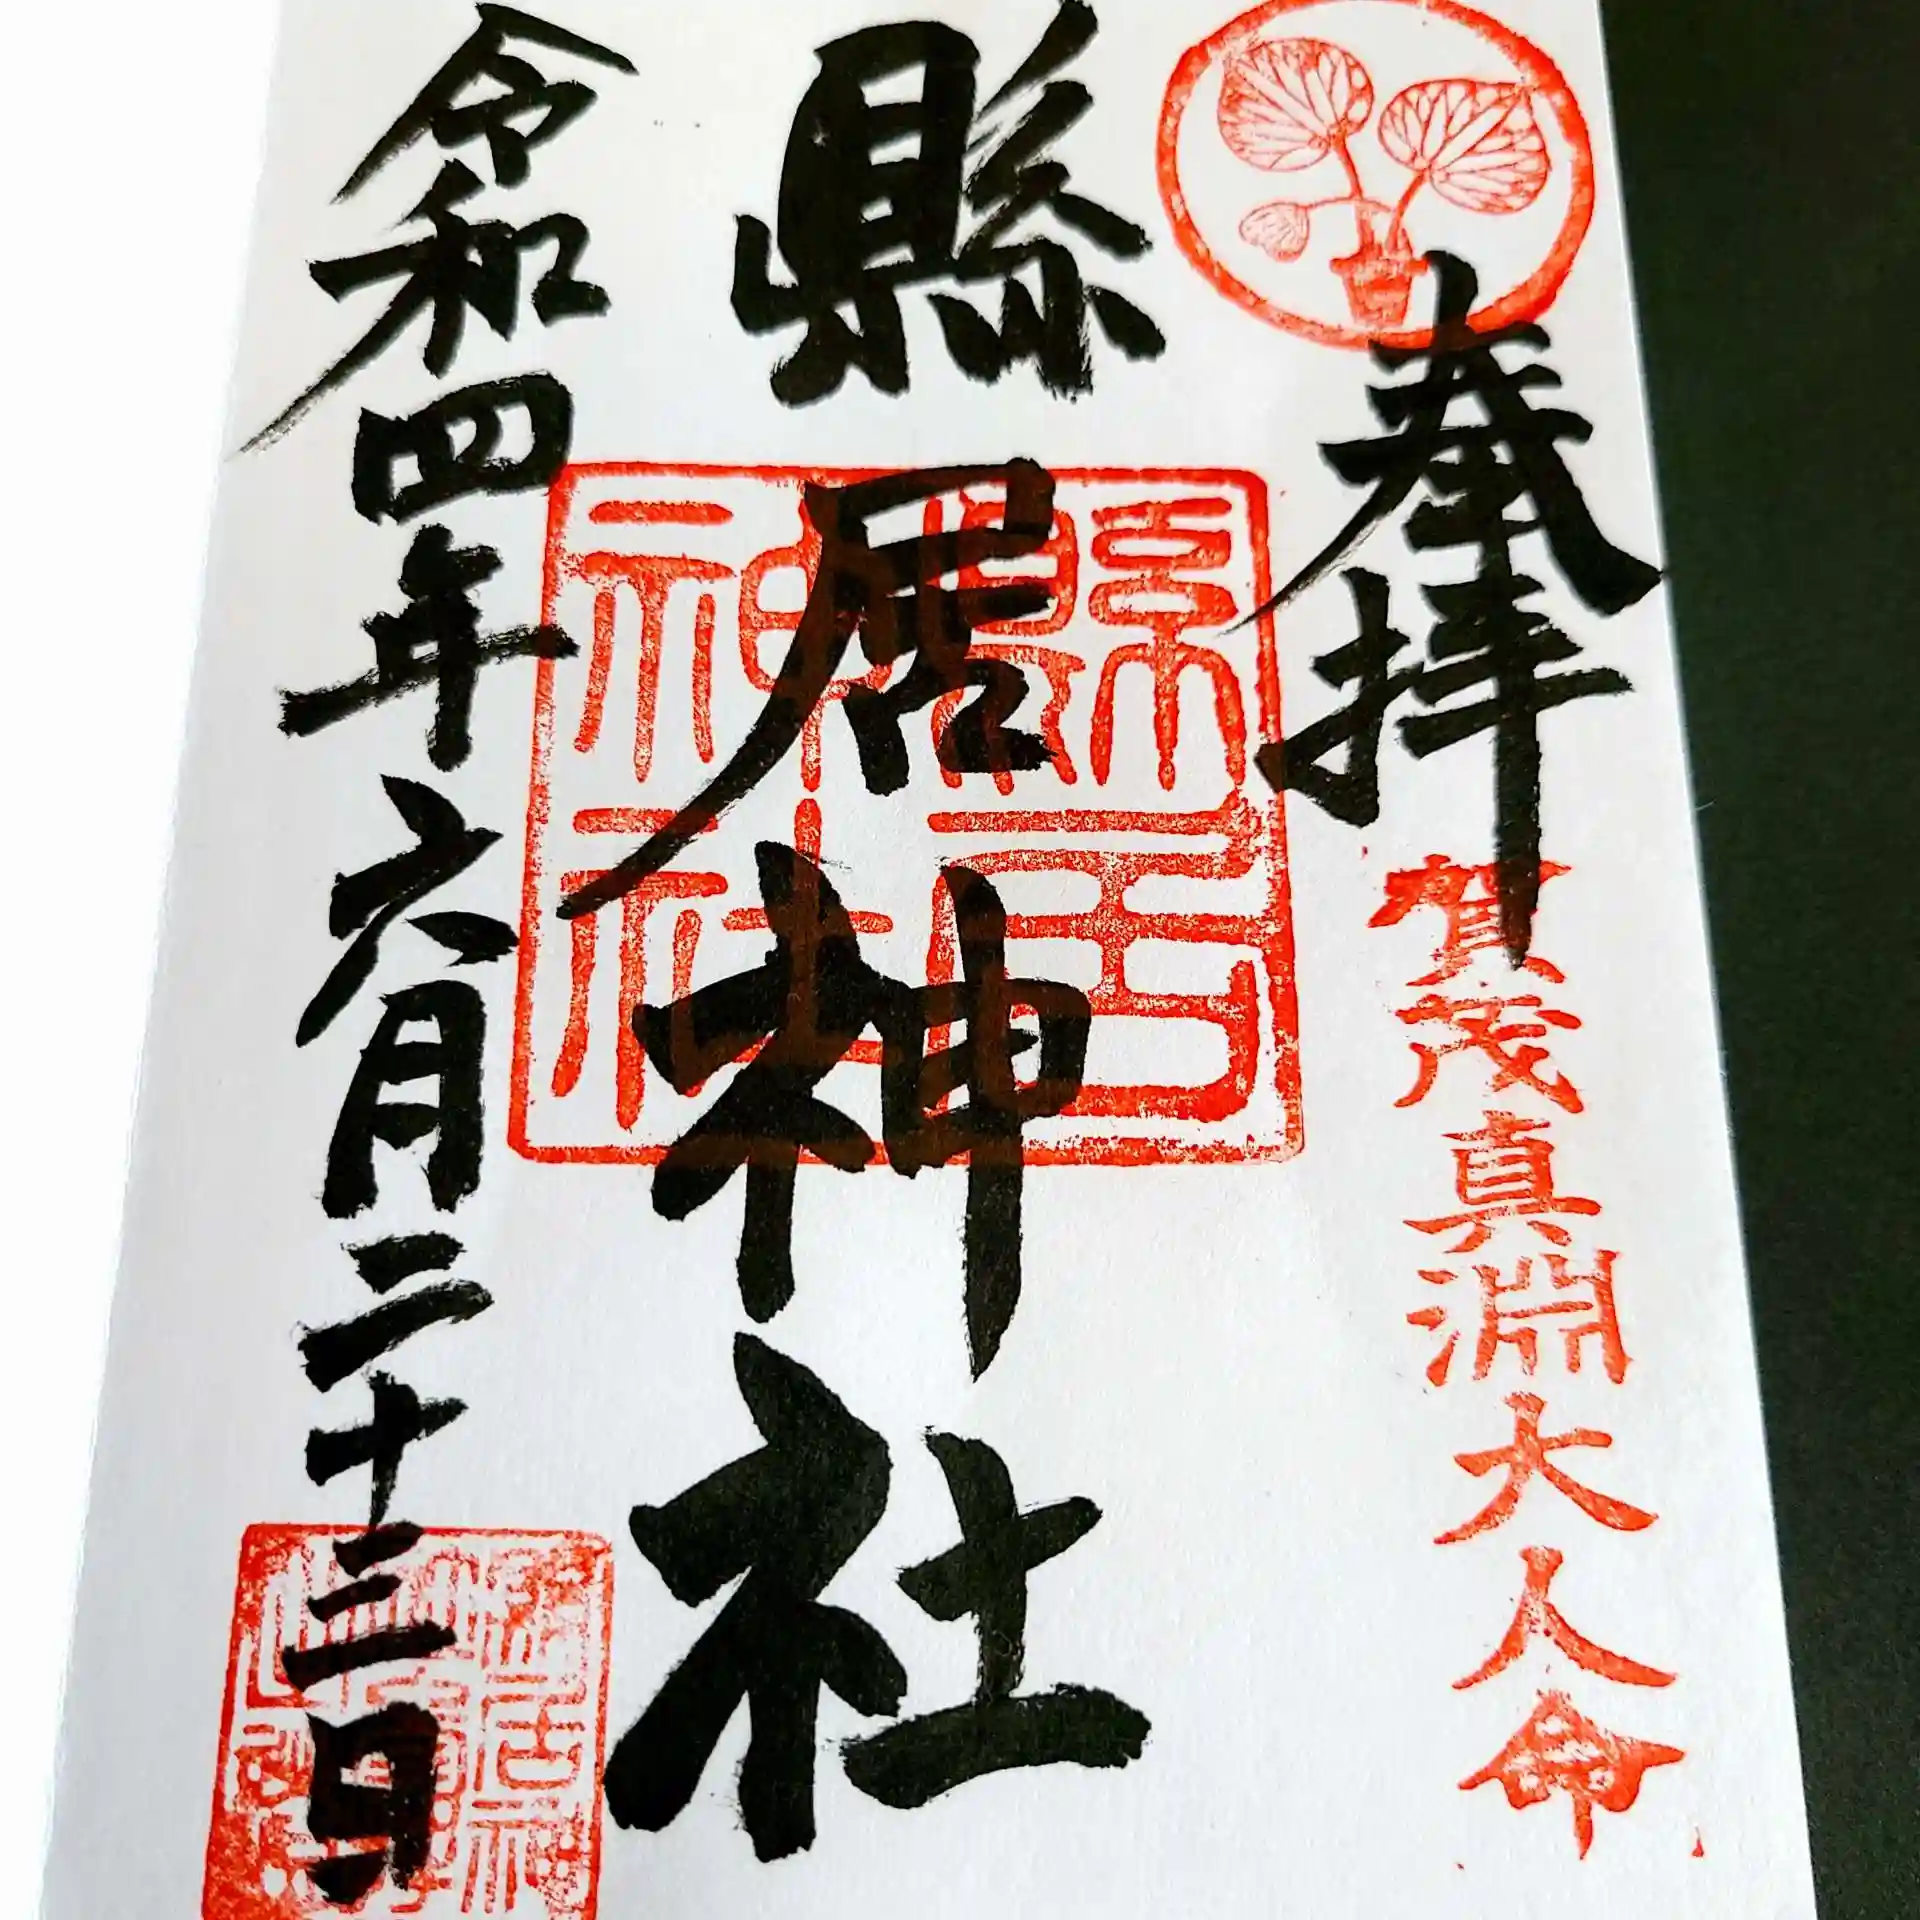 奉拝
賀茂真淵大人命
縣居神社
縣居神社
令和四年六月二十三日